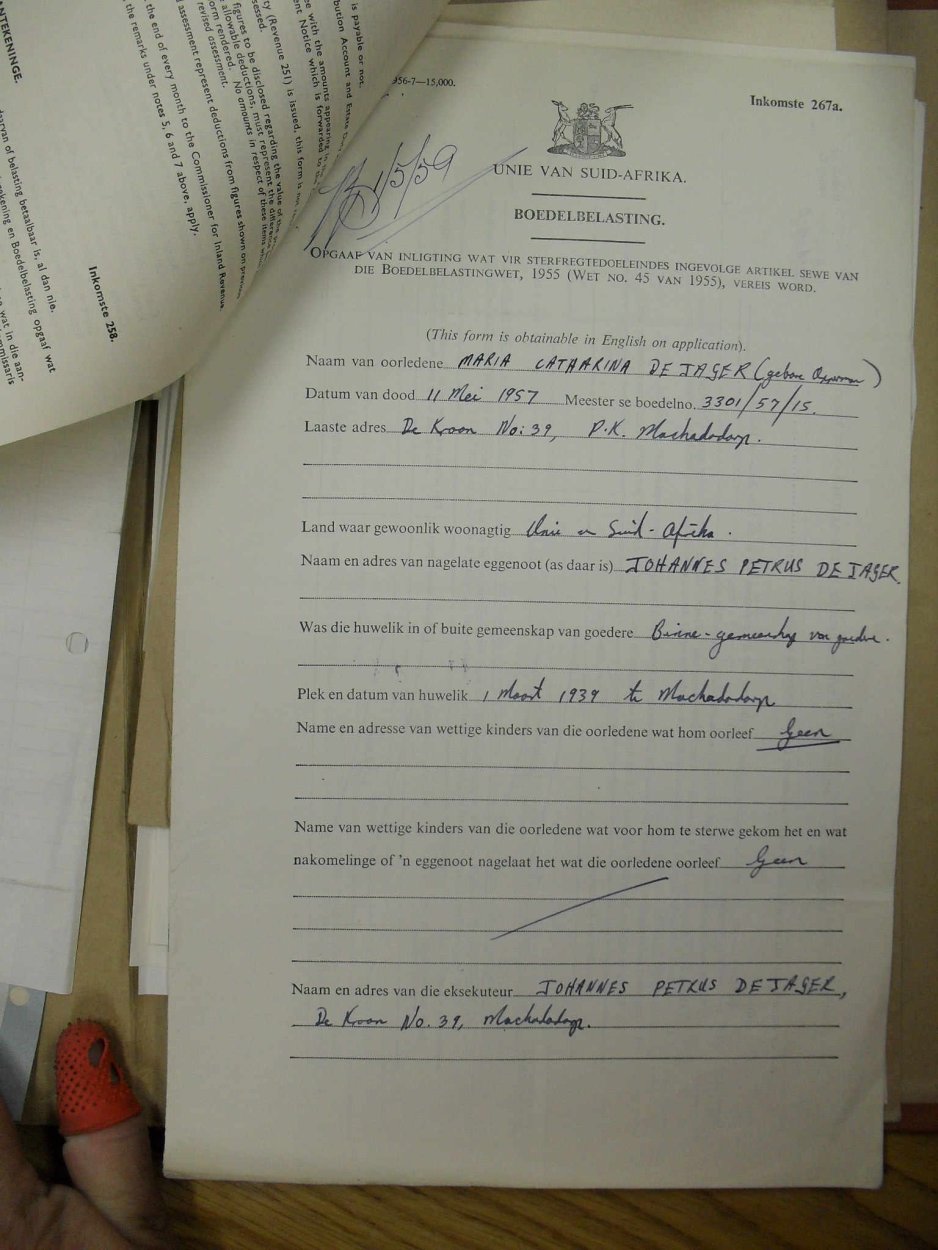 ANTEKENINGE.
is payable or not.
bution Account and Estate
e with the amounts appearing in
ent Notice which is forwarded to
ty (Revenue 251) is issued, this form is not
sessed.
figures to be disclosed regarding the value of the
allowable deductions, must represent the difference
orm rendered. No amounts in respect of these items
revised assessment.
assessment represent deductions from figures shown on previous
the end of every month to the Commissioner for Inland Revenue.
the remarks under notes 5, 6 and 7 above, apply.
Inkomste 258.
daarvan of belasting betaalbaar is, al dan nie.
rekening en Boedelbelasting opgaaf wat
se wat in die aan-
mmissaris
956-7—15,000.
Inkomste 267a.
1/5/59
UNIE VAN SUID-AFRIKA.
BOEDELBELASTING.
OPGAAF VAN INLIGTING WAT VIR STERFREGTEDOELEINDES INGEVOLGE ARTIKEL SEWE VAN
DIE BOEDELBELASTINGWET, 1955 (WET NO. 45 VAN 1955), VEREIS WORD.
(This form is obtainable in English on application).
Naam van oorledene MARIA CATHARINA DE JAGER (gebore
Datum van dood 11 Mei 1957 Meester se boedelno. 3301/57/15.
Laaste adres De Kroon No: 39, P.K. Machadodorp.
Land waar gewoonlik woonagtig Unie v Suid-Afrika.
Naam en adres van nagelate eggenoot (as daar is) JOHANNES PETRUS DE JAGER
Was die huwelik in of buite gemeenskap van goedere Binne-gemeenskap van goedere.
Plek en datum van huwelik 1 Maart 1939 te Machadodorp
Name en adresse van wettige kinders van die oorledene wat hom oorleef Geen
Name van wettige kinders van die oorledene wat voor hom te sterwe gekom het en wat
nakomelinge of 'n eggenoot nagelaat het wat die oorledene oorleef Geen
Naam en adres van die eksekuteur JOHANNES PETRUS DE JAGER,
De Kroon No. 39, Machadodorp.